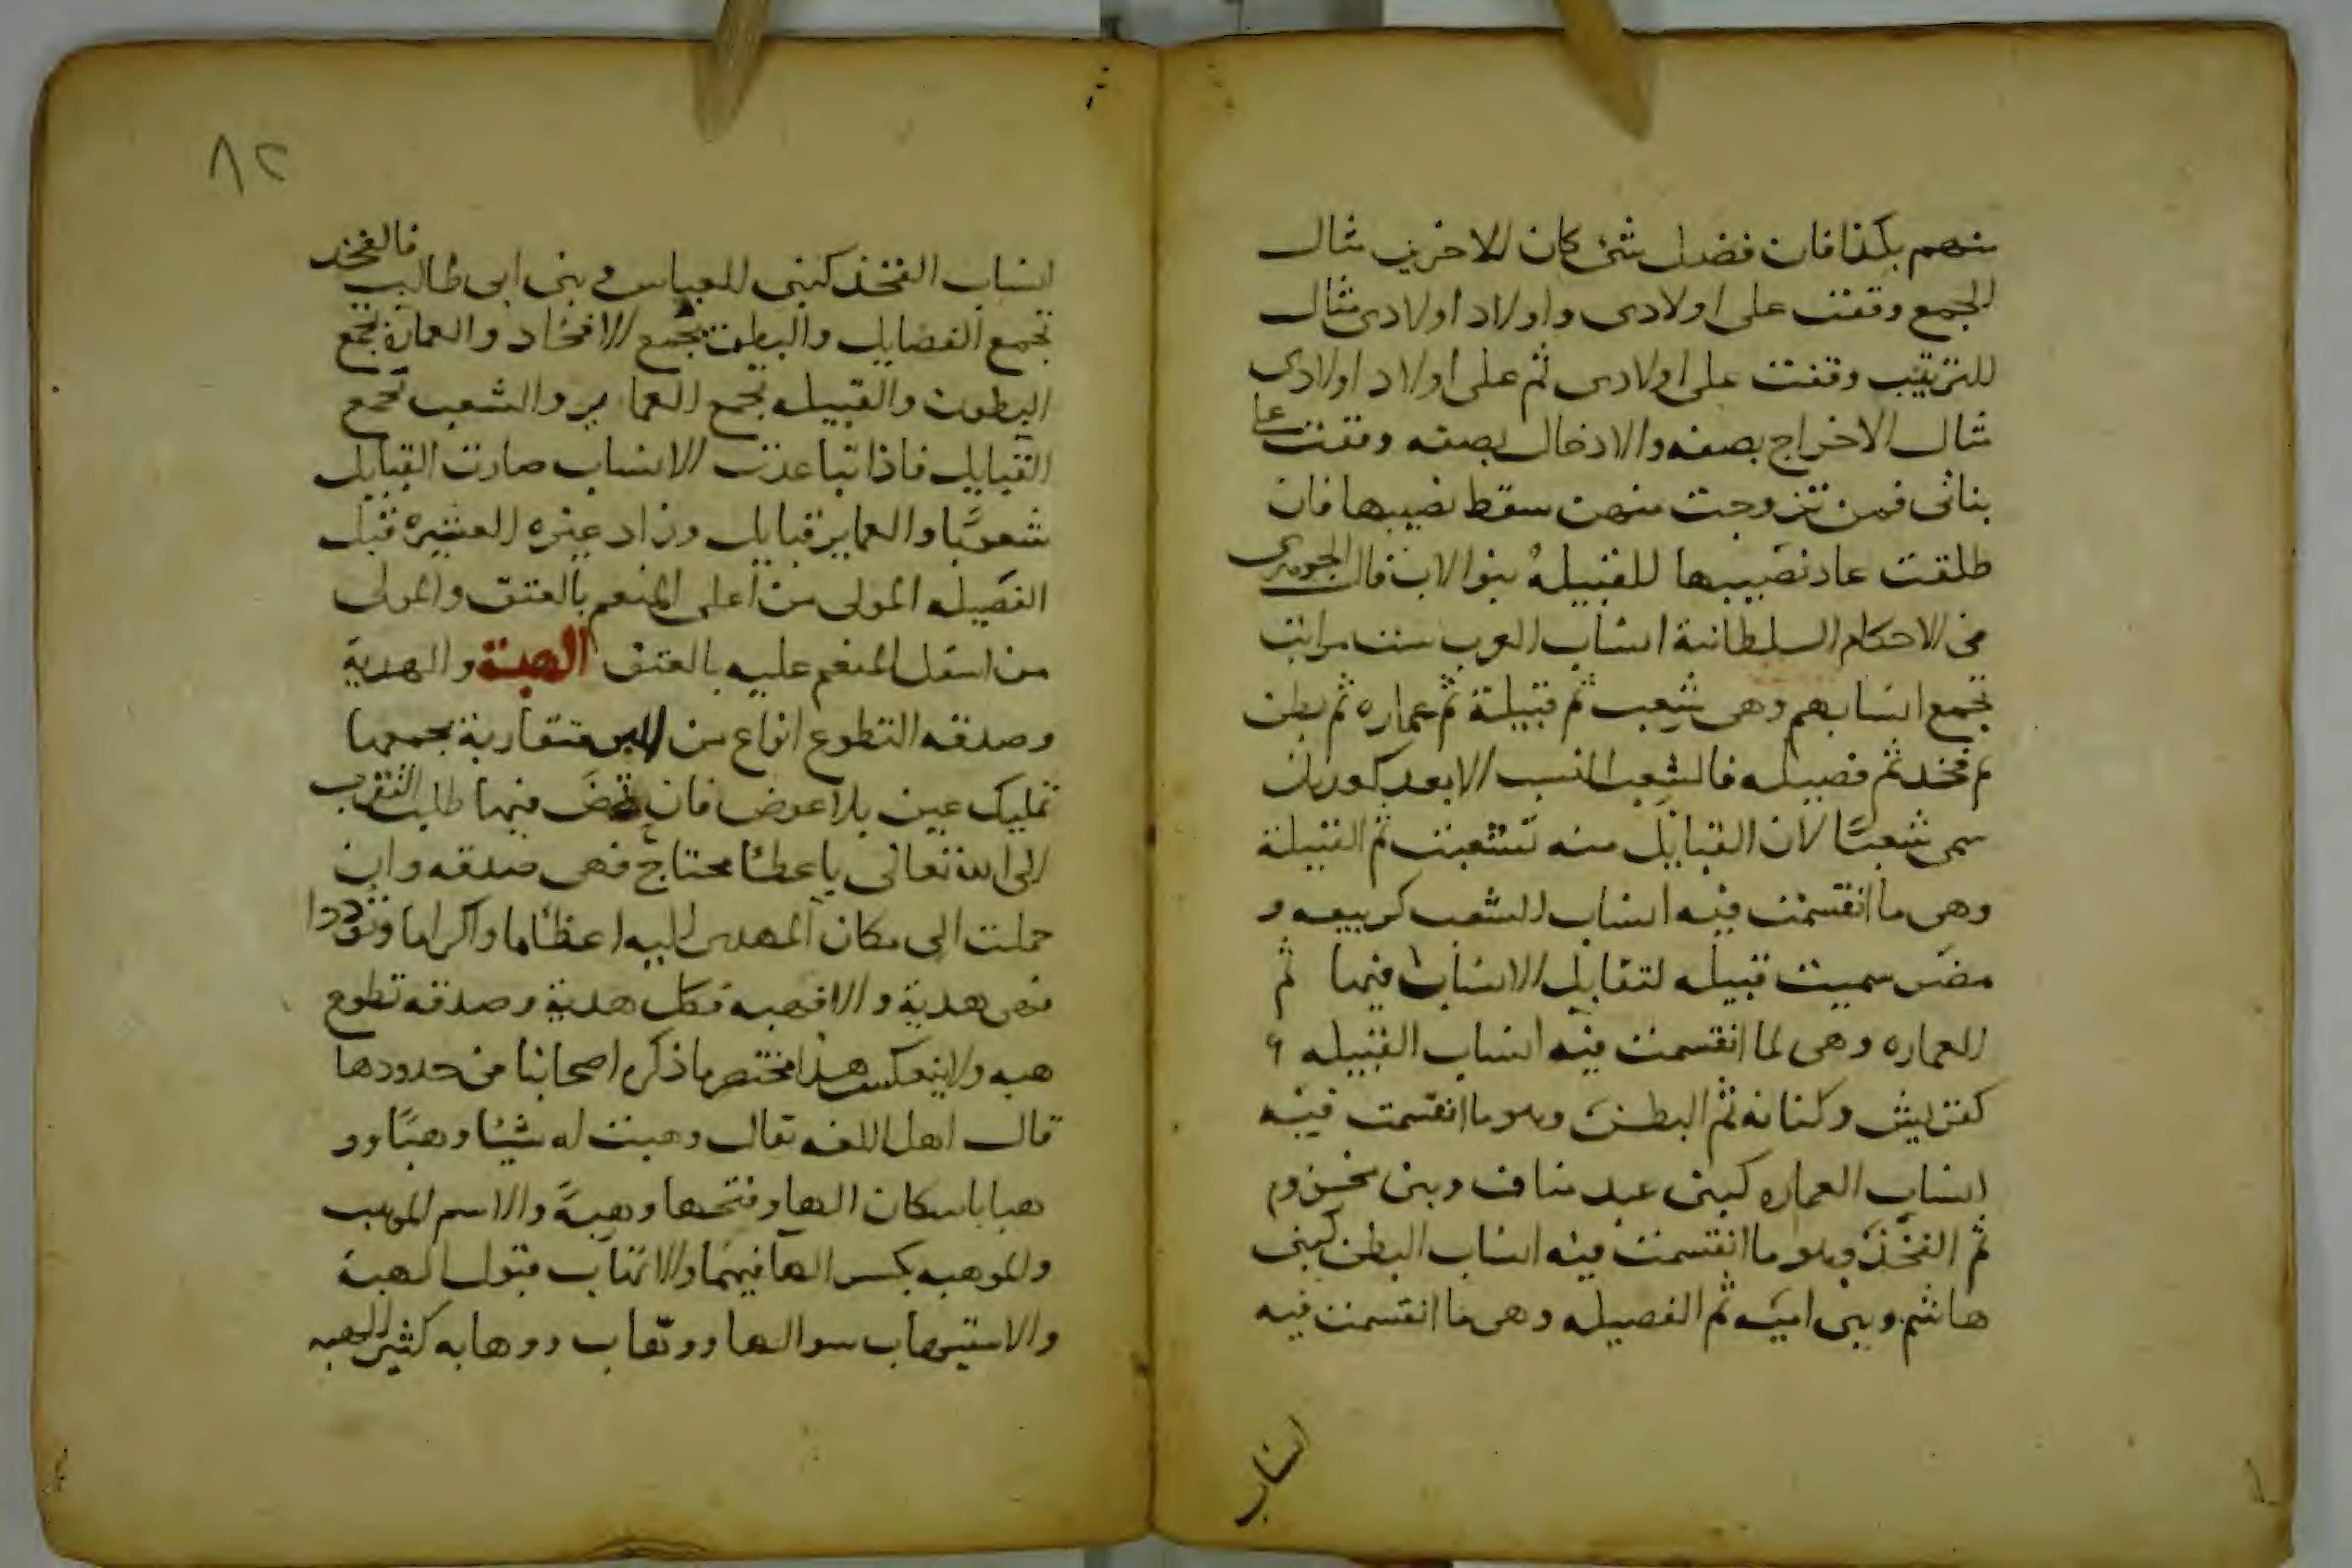 منهم بكذا فان فضل شئ كان للاخرين مثال
الجمع وقفت على اولادى واولاد اولادى مثال
الترتيب وقفت على اولادى ثم على اولاد اولادى
مثال الاخراج بصفه والادخال بصفه وقفت على
بناتى فمن تزوجت منهن سقط نصيبها فان
طلقت عاد نصيبها القبيلة بنو الاب قال
فى الاحكام السلطانية انساب العرب ست مراتب
تجمع انسابهم وهى شعب ثم قبيلة ثم عماره ثم بطن
ثم فخد ثم فصيله فالشعب النسب الابعد كعدنان
سمى شعبًا لان القبايل منه تشعبت ثم القبيلة
وهى ما انقسمت فيه انساب الشعب كربيعه و
مضر سميت قبيله لتقابل الانساب فيها ثم
العماره وهى لما انقسمت فيه انساب القبيله
كقريش وكنانه ثم البطن وهو ما انقسمت فيه
انساب العماره كبنى عبد مناف وبنى مخزوم
ثم الفخذ وهو ما انقسمت فيه انساب البطن كبنى
هاشم وبنى اميه ثم الفصيله وهى ما انقسمت فيه
انساب
٨٢
انساب الفخذ كبنى العباس وبنى ابى طالب فالفخذ
تجمع الفضايل والبطن تجمع الافخاد والعمارة تجمع
البطون والقبيله تجمع العماير والشعب تجمع
القبايل فاذا تباعدت الانساب صارت القبايل
شعوبًا والعماير قبايل وزاد غيره العشيره قبل
الفصيله المولى من اعلى المنعم بالعتق والمولى
من اسفل المنعم عليه بالعتق الهبة والهدية
وصدقه التطوع انواع من البر متقاربة يجمعها
تمليك عين بلا عوض فان تمحض فيها طلب التقرب
الى الله تعالى باعطا محتاج فهى صدقه وان
حملت الى مكان المهدى اليه اعظاما واكراما وتوددا
فهى هدية والا فهبه فكل هدية وصدقه تطوع
هبه ولا ينعكس هذا مختصر ما ذكره اصحابنا من حدودها
قال اهل اللغه يقال وهبت له شيئا وهبًا وو
هبا باسكان الها وفتحها وهبةً والاسم الموهب
والموهبه بكسر الها فيهما والاتهاب قبول الهبة
والاستيهاب سوالها ووهاب ووهابه كثير الهبه